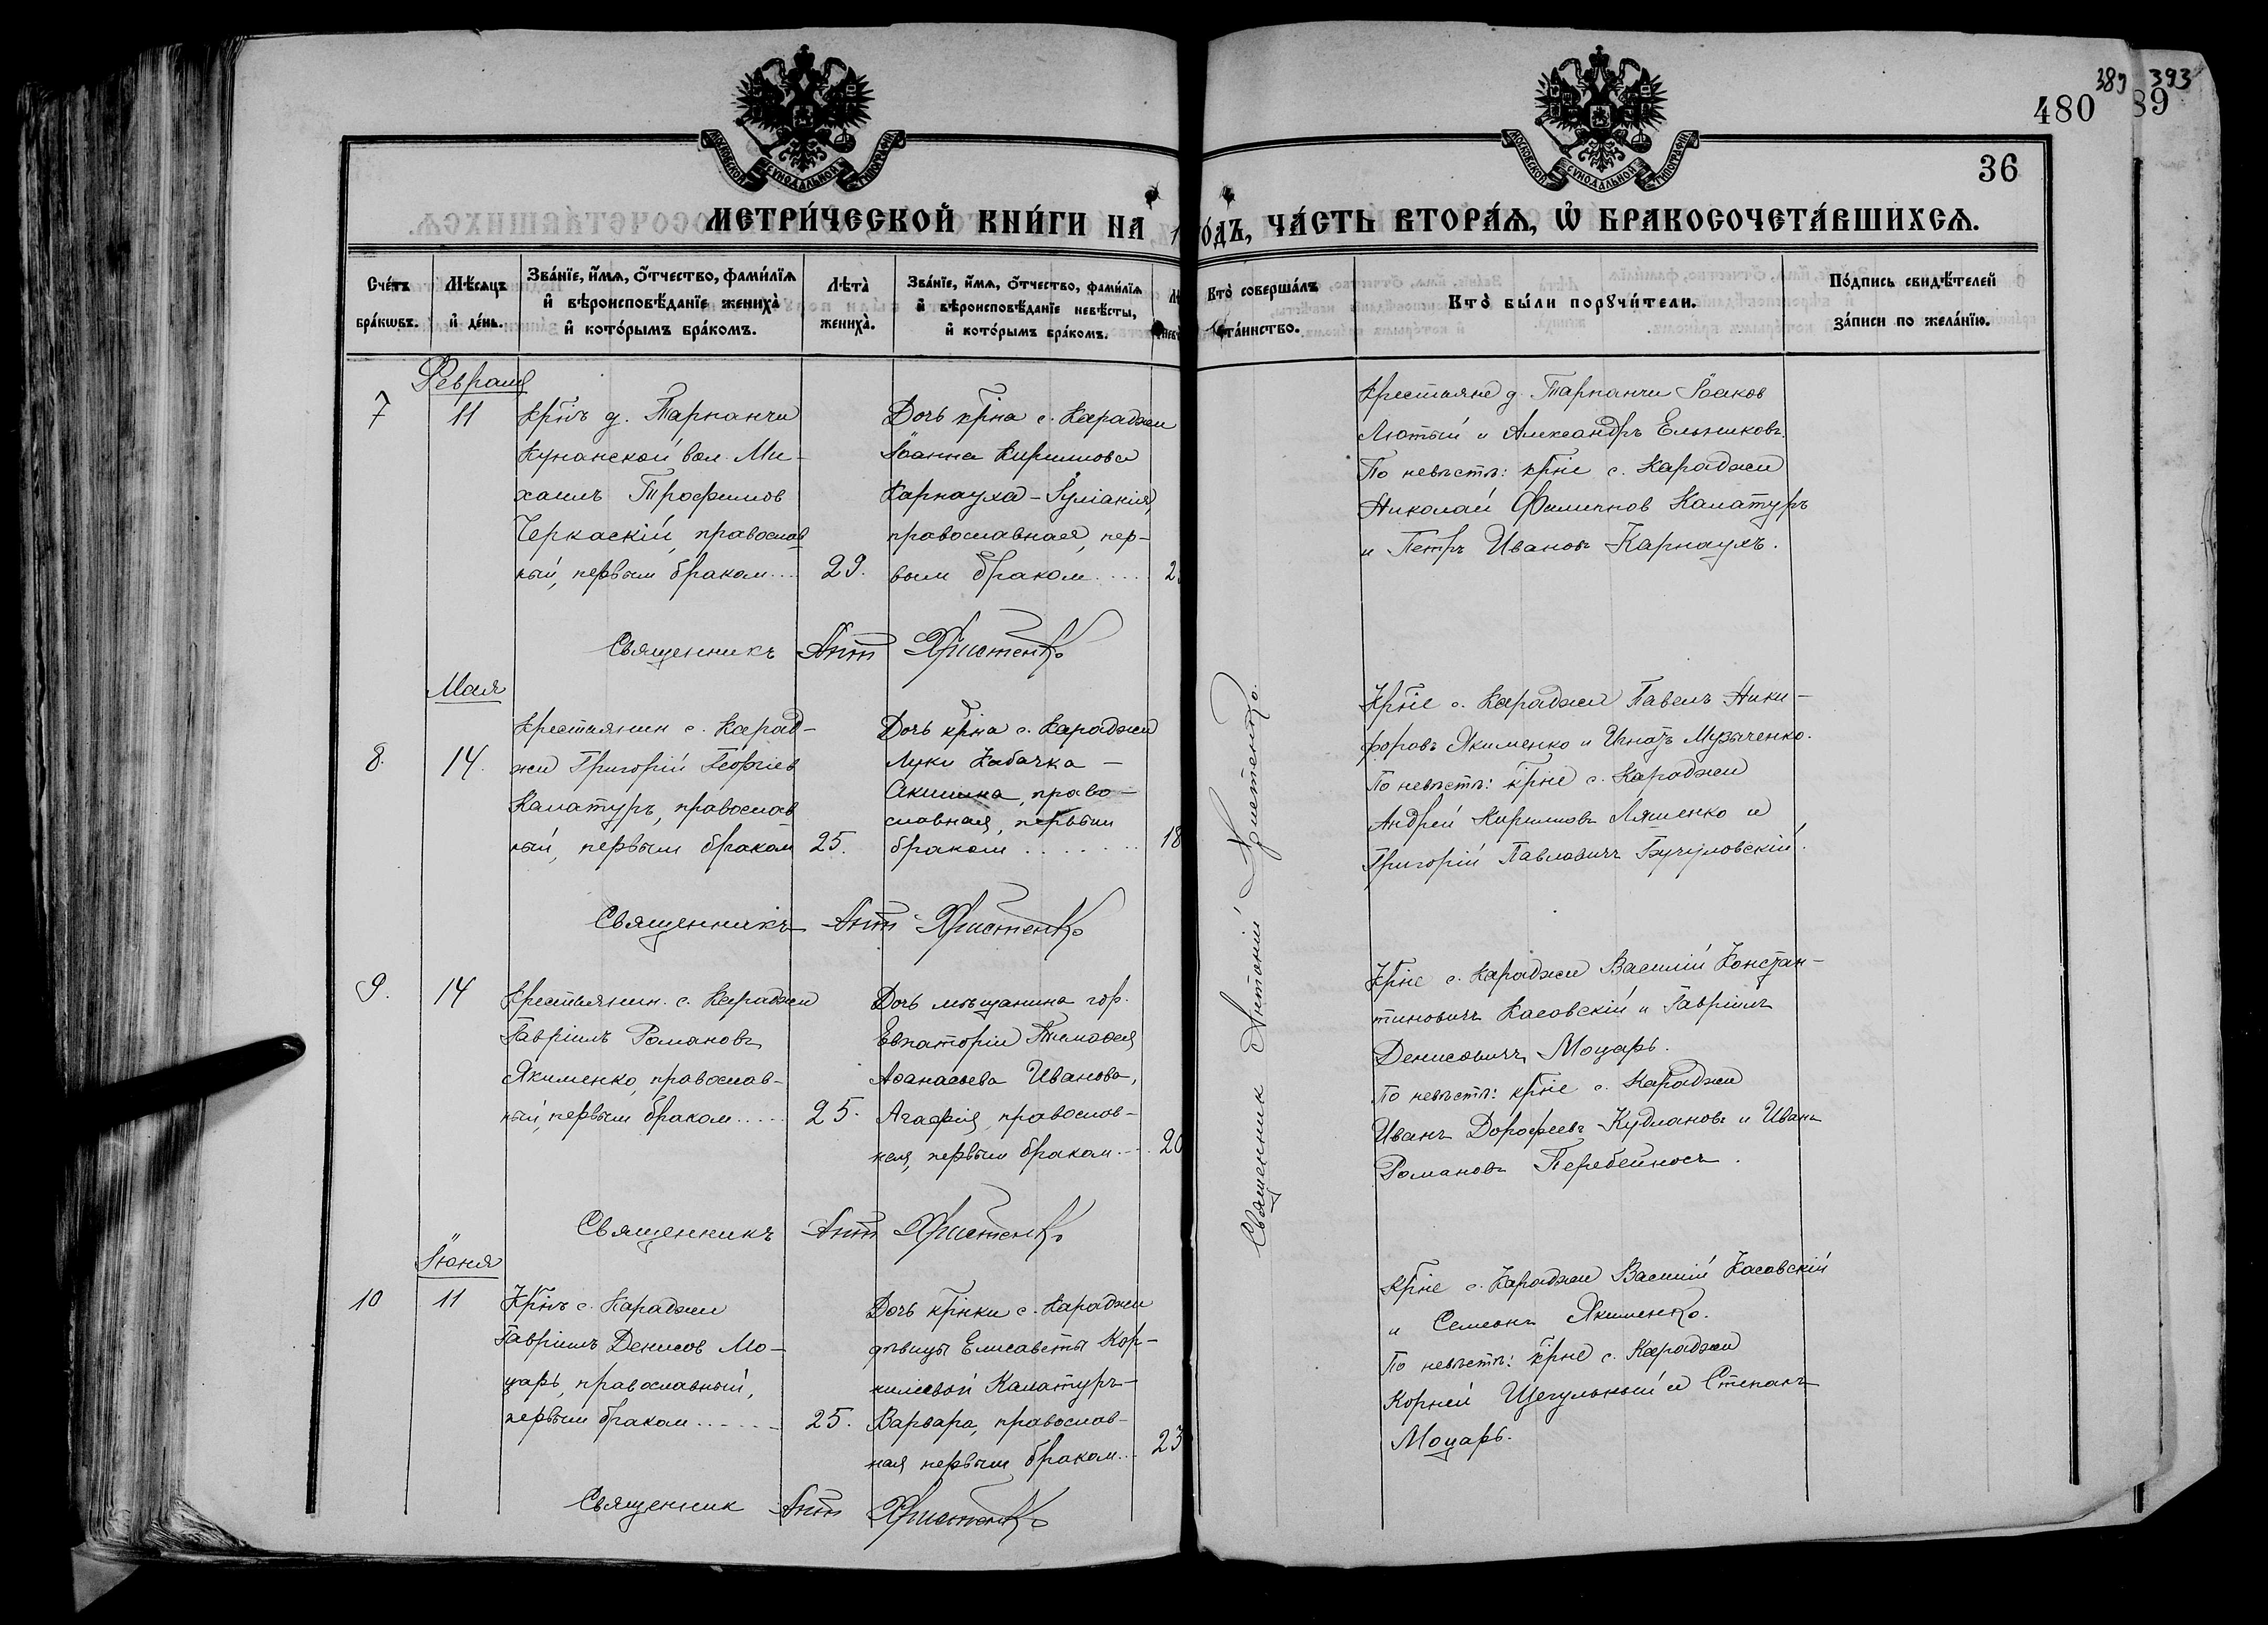 389 393
480 89
36
МОСКОВСКОЙ СѴНОДАЛЬНОЙ ТИПОГРАФІИ
МОСКОВСКОЙ СѴНОДАЛЬНОЙ ТИПОГРАФІИ
МЕТРИ́ЧЕСКОЙ КНИ́ГИ НА 1
О́ДЪ, ЧА́СТЬ ВТОРА́Ѧ, Ѽ БРАКОСОЧЕТА́ВШИХСѦ.
Сче́тъ бра́кѡвъ.
Мѣ́сѧцъ и҆ де́нь.
Зва́нїе, и҆́мѧ, ѻ҆́тчество, фами́лїѧ
и҆ вѣроисповѣ́данїе жениха̀
и҆ кото́рымъ бра́комъ.
Лѣта̀ жениха̀.
Зва́нїе, и҆́мѧ, ѻ҆́тчество, фами́лїѧ
и҆ вѣроисповѣ́данїе невѣ́сты,
и҆ кото́рымъ бра́комъ.
Кто̀ соверша́лъ
та́инство.
Кто̀ бы́ли порꙋчи́тели.
По́дпись свидѣ́телей
за́писи по жела́нїю.
Февраля
7
11
Крнъ д. Тарпанчи
Кунанской вол. Ми-
хаилъ Трофимов
Черкаскій, православ
ный, первым браком...
29.
Дочь крна с. Караджи
Іоанна Кириллова
Карнауха - Іуліанія,
православная, пер-
вым браком....
2
Крестьяне д. Тарпанчи Іаков
Лютый и Александръ Ельников.
По невѣстѣ: крне с. Караджи
Николай Филиппов Калатуръ
и Петръ Иванов Карнаухъ.
Священникъ Ант Христенко
Мая
8.
14.
Крестьянин с. Карад-
жи Григорій Георгіев
Калатуръ, православ
ный, первым браком
25.
Дочь крна с. Караджи
Луки Кабачка -
Акилина, право-
славная, первым
браком ........
18
Крне с. Караджи Павелъ Ники-
форовъ Якименко и Игнатъ Музыченко.
По невѣстѣ: крне с. Караджи
Андрей Кирилловъ Ляшенко и
Григорій Павловичъ Бучуловскій.
Священникъ Ант Христенко
9.
14
Крестьянин с. Караджи
Гавріилъ Романовъ
Якименко, православ-
ный, первым браком.....
25.
Дочь мѣщанина гор.
Евпаторіи Тимоѳея
Аѳанасьева Иванова,
Агафія, православ-
ная, первым браком....
20
Крне с. Караджи Василій Констан-
тиновичъ Касовскій и Гавріилъ
Денисовичъ Моцарь.
По невѣстѣ: крне с. Караджи
Иванъ Дорофеевъ Кудлановъ и Иванъ
Романовъ Перебейносъ.
Священникъ Ант Христенко
Священник Антоній Христенко.
Іюня
10
11
Крнъ с. Караджи
Гавріилъ Денисов Мо-
царь, православный,
первым браком......
25.
Дочь крнки с. Караджи
дѣвицы Елисаветы Кор-
нилієвой Калатуръ-
Варвара, православ-
ная первым браком...
23
Крне с. Караджи Василій Касовскій
и Семенъ Якименко.
По невѣстѣ: крне с. Караджи
Корней Щегульный и Степанъ
Моцарь.
Священник Ант Христенко